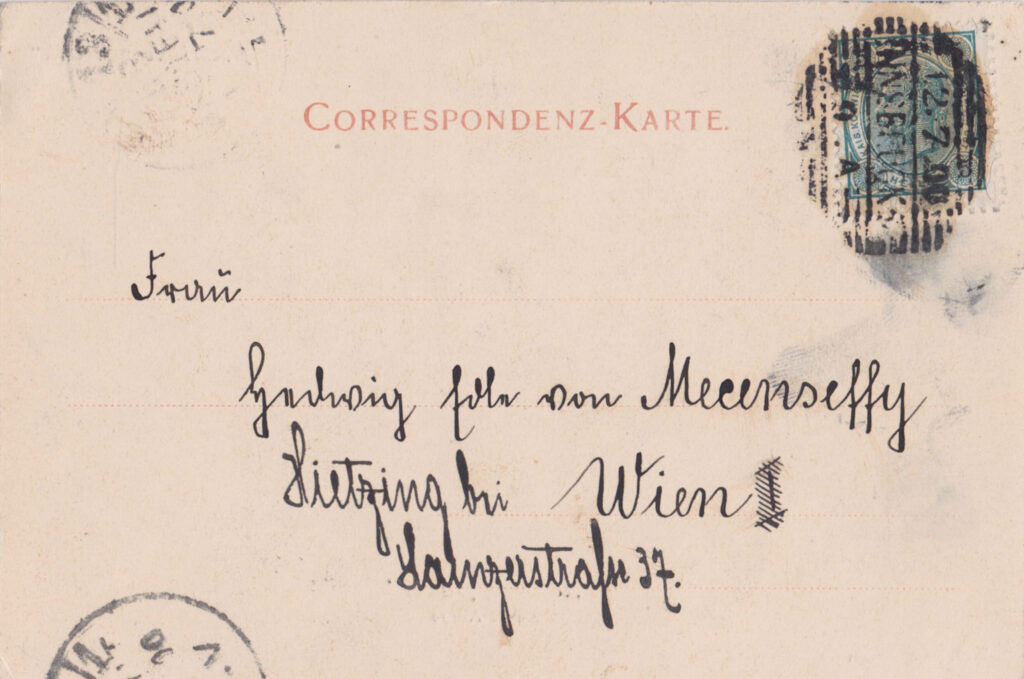 CORRESPONDENZ-KARTE.
INNSBRUCK
12.7.00
Frau
Hedwig Edle von Mecenseffy
Hietzing bei Wien
Hainzerstraße 37.